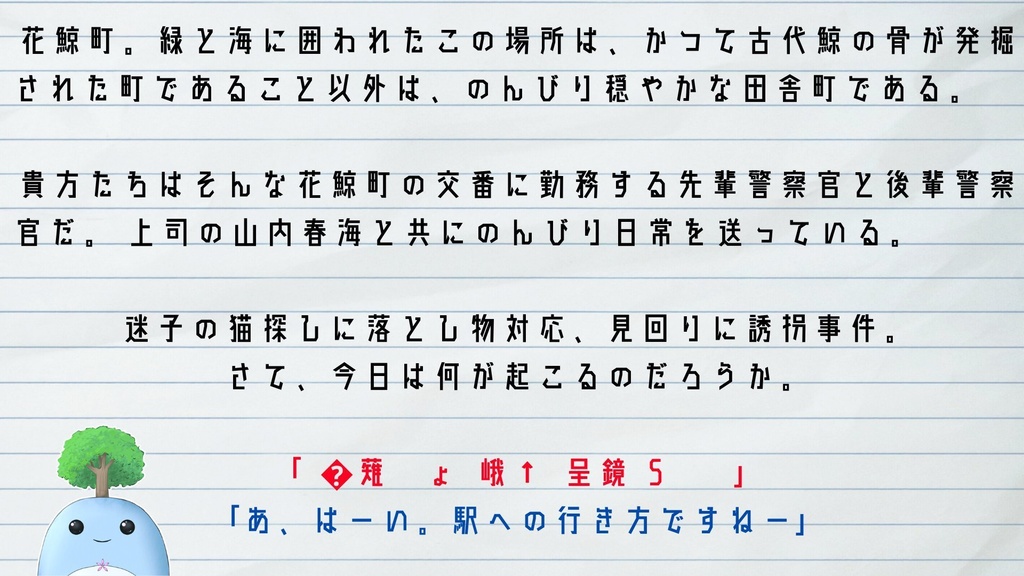 花鯨町。緑と海に囲われたこの場所は、かつて古代鯨の骨が発掘
された町であること以外は、のんびり穏やかな田舎町である。
貴方たちはそんな花鯨町の交番に勤務する先輩警察官と後輩警察
官だ。上司の山内春海と共にのんびり日常を送っている。
迷子の猫探しに落とし物対応、見回りに誘拐事件。
さて、今日は何が起こるのだろうか。
「�薙 ょ 峨↑ 呈鏡５ 」
「あ、はーい。駅への行き方ですねー」